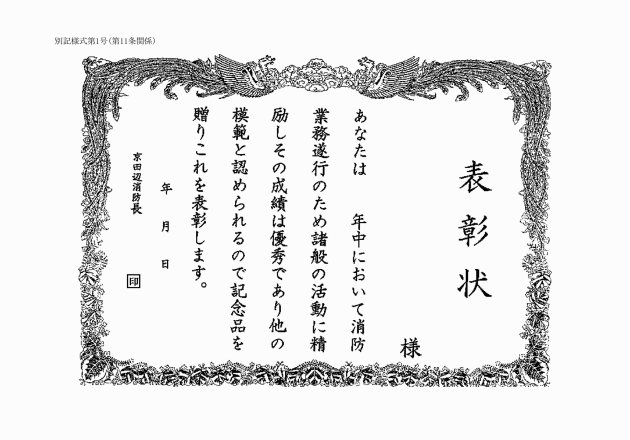 別記様式第1号(第11条関係)
表彰状
様
あなたは　　年中において消防
業務遂行のため諸般の活動に精
励しその成績は優秀であり他の
模範と認められるので記念品を
贈りこれを表彰します。
年　月　日
京田辺消防長
印